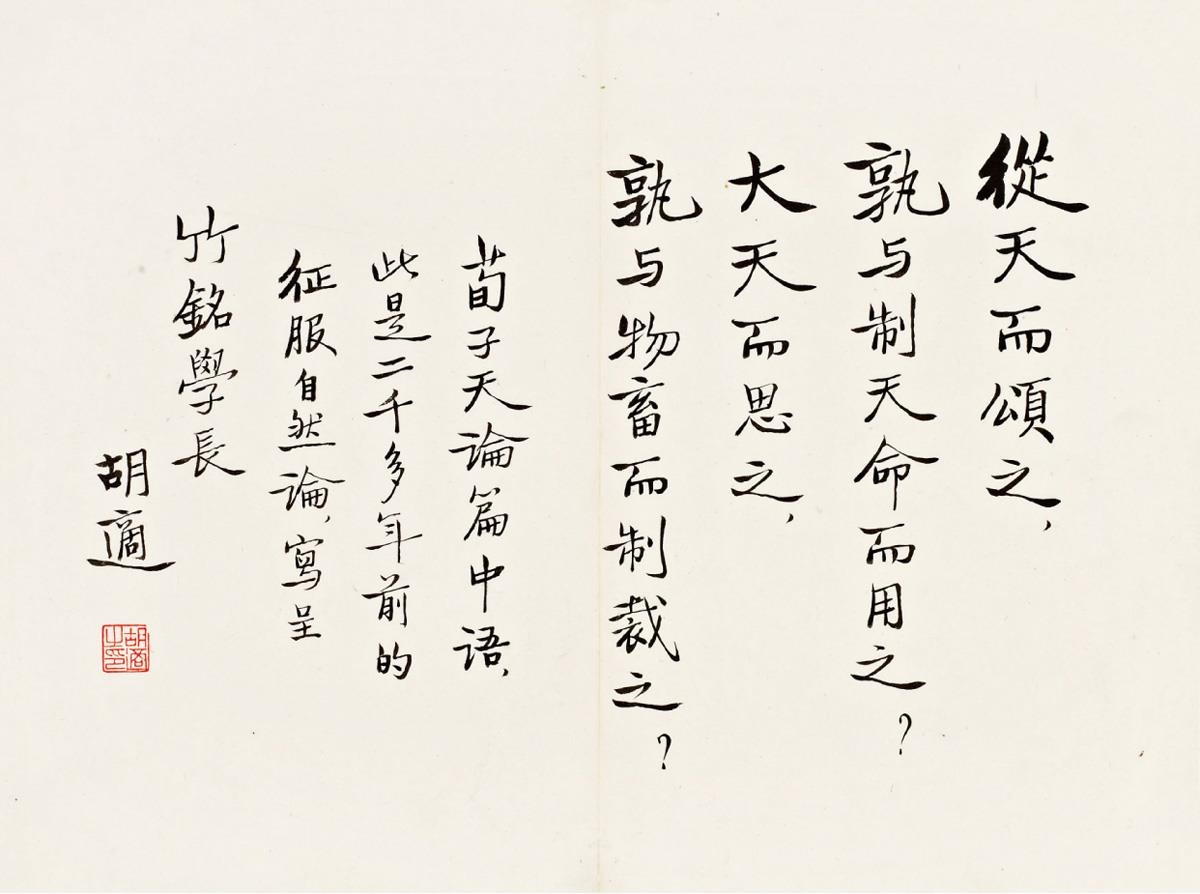 從天而頌之，
孰与制天命而用之？
大天而思之，
孰与物畜而制裁之？
荀子天論篇中语，
此是二千多年前的
征服自然論，寫呈
竹銘學長
胡適
胡適之印